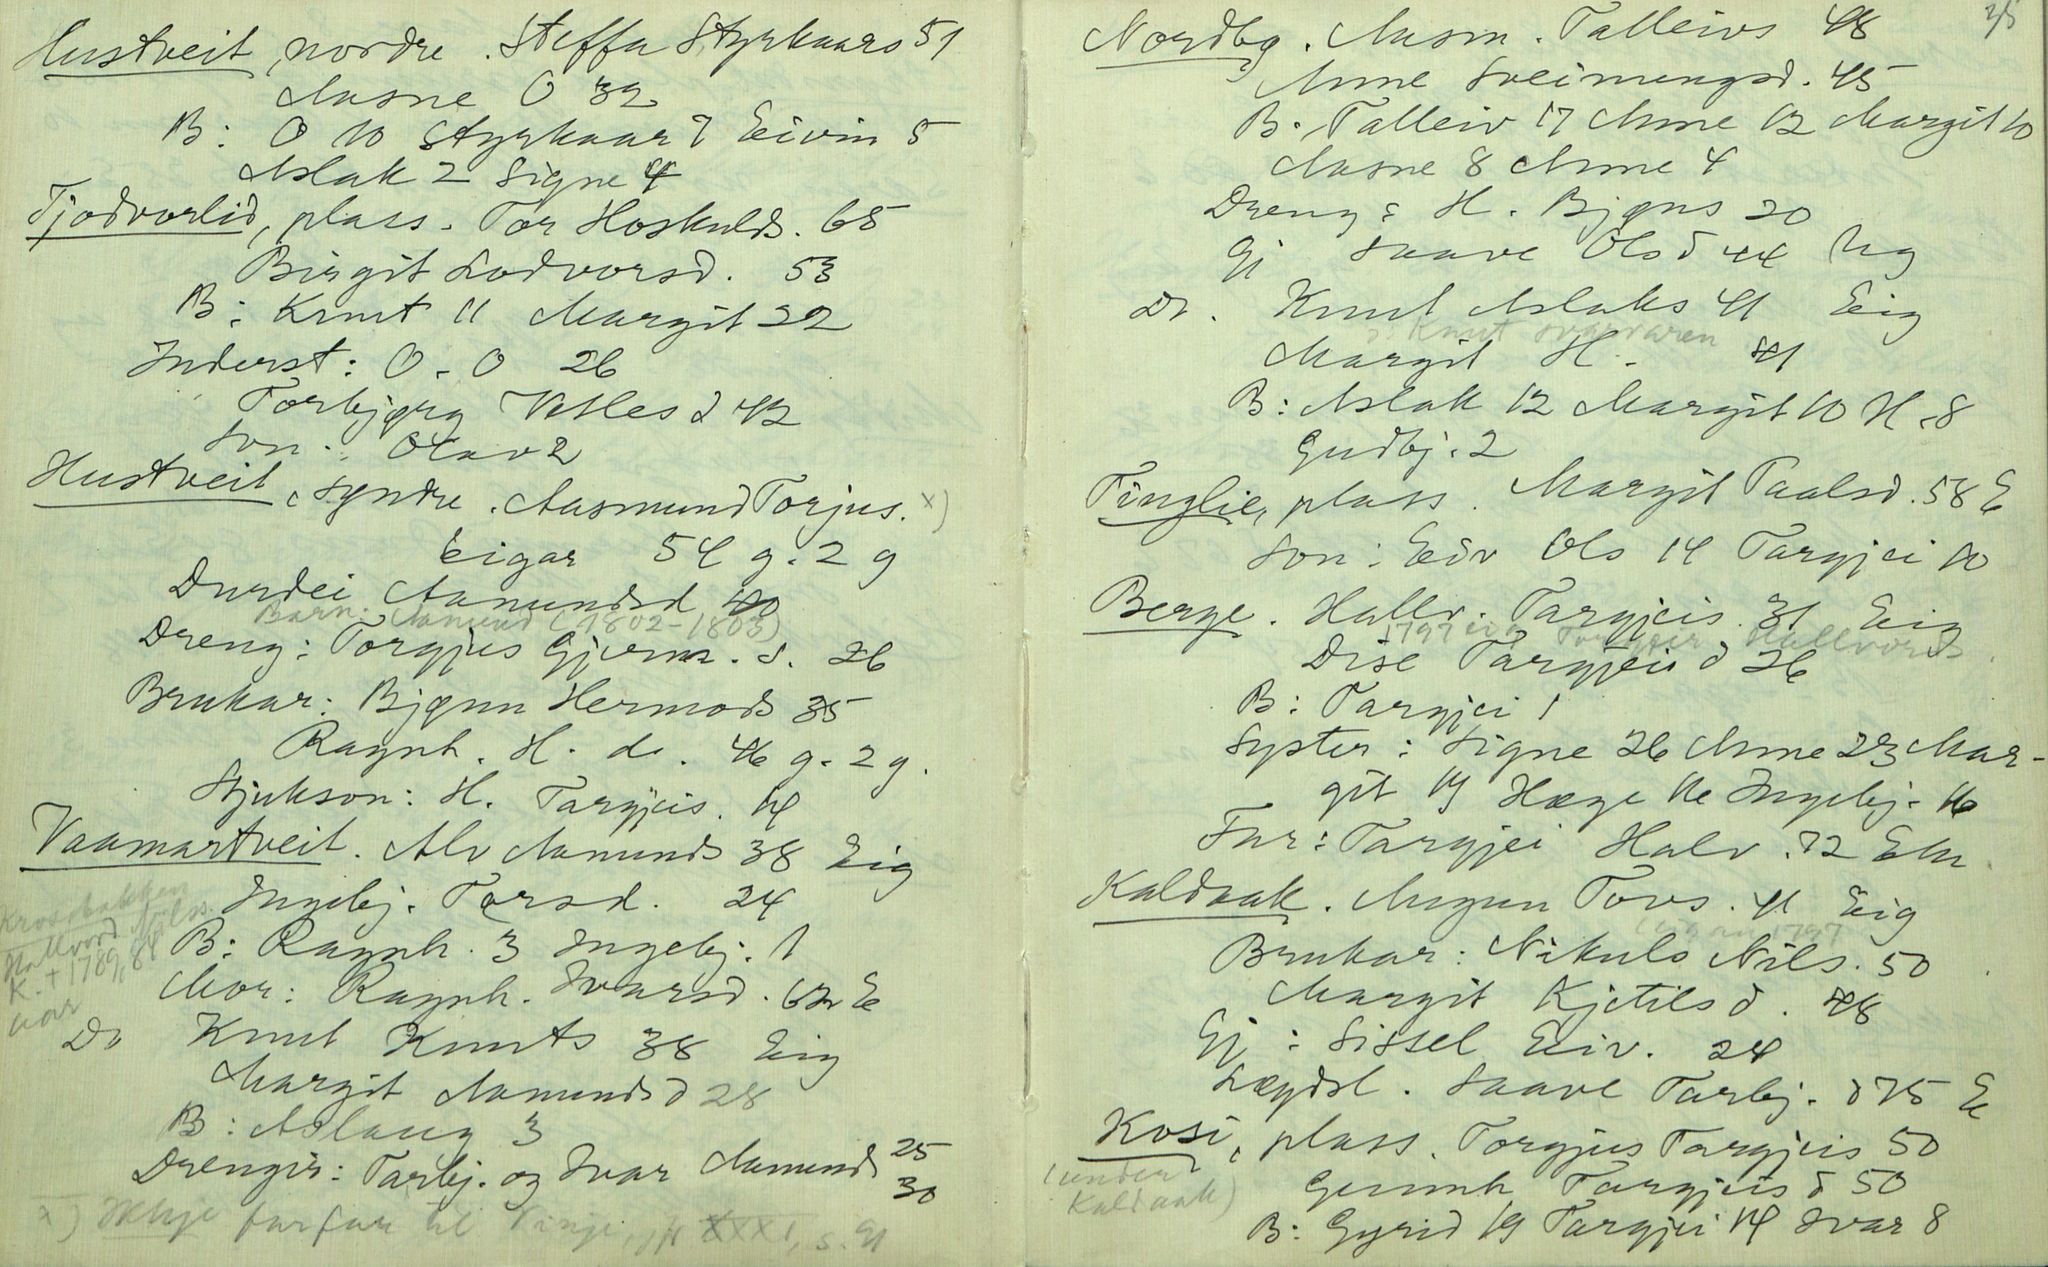 Hustveit, nordre. Steffa Styrkaars 51
Aasne O 32
B: O 10 Styrkaar 7 Eivin 5
Aslak 2 Signe 4
Tjodvorlid, plass. Tor Hoskulds. 68
Birgit Lodvorsd. 53
B: Knut 11 Margit 22
Inderst: O. O 26
Torbjørg Vetlesd 42
Son: Olav 2
Hustveit, syndre. Aasmund Torjus. x)
Eigar 54 g. 2 g
Durdei Aamundsd 40
Barn: Aamund (1802-1803)
Dreng: Torgjus Gjerm. s. 26
Brukar: Bjønn Hermods 35
Ragnh. H. d. 46 g. 2 g.
Stjukson: H. Targjeis. 14
Vaamartveit. Alv Aamunds 38 Eig
Ingebj. Torsd. 24
Krossbakken
Hallvord Nilss.
K. + 1789, 84
aar
B: Ragnh. 3 Ingebj. 1
Mor: Ragnh. Ivarsd. 62 E
Do Knut Knuts 38 Eig
Margit Aamundsd 28
B: Aslaug 3
Drengir: Tarbj. og Ivar Aamunds 25 30
x) Ikkje farfar til Vinje, jfr XXXI, s. 91
25
Nordbø. Aasm. Talleivs 48
Anne Sveinungsd. 45
B. Talleiv 17 Anne 12 Margit 10
Aasne 8 Anne 4
Dreng: H. Bjøns 20
Gj Saave Olsd 44 Ug
Do. Knut Aslaks 41 Eig
Knut
Margit H. 41
B: Aslak 12 Margit 10 H. 8
Gudbj. 2
Tinglie, plass. Margit Paalsd. 58 E
Son: Eiv Ols 14 Targjei 10
Berge. Hallv. Targjeis. 31 Eig
1797 eig Targjei Hallvords
Dise Targjeisd 26
B: Targjei 1
Syster: Signe 26 Anne 23 Mar-
git 19 Hæge 16 Ingebj. 16
Far: Targjei Halv. 72 Ekm
Kaldaak. Augun Tovs. 41 Eig
1797
Brukar: Nikuls Nils. 50
Margit Kjetilsd. 48
Gj: Sissel Eiv. 24
Lægdsl. Saave Tarbj. d 75 E
Kosi, plass. Torgjus Targjeis 50
(under
Kaldaak)
Gunnh Targjeisd 50
B: Gyrid 19 Targjei 14 Ivar 8